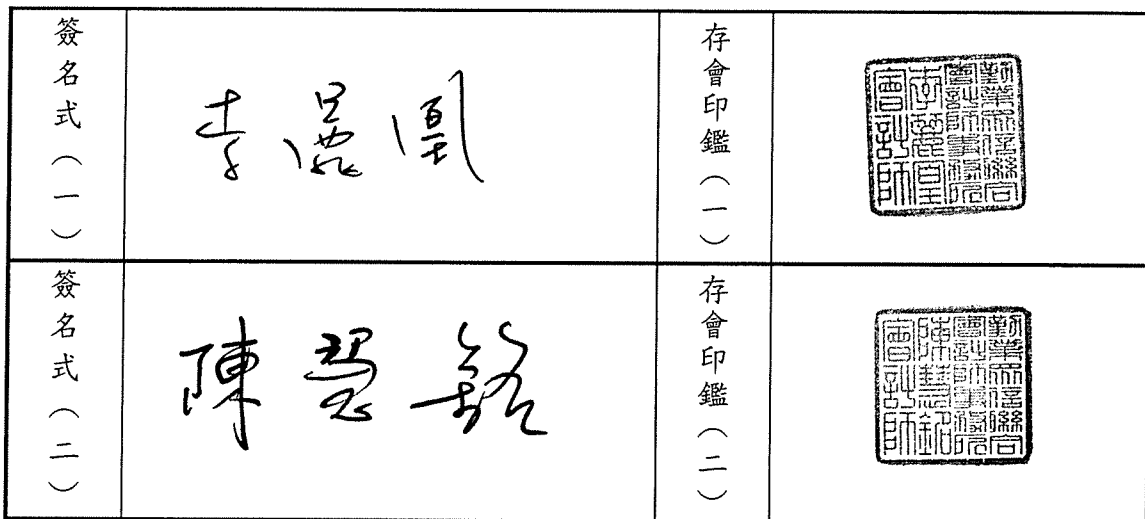 簽名式（一）
李麗凰
存會印鑑（一）
勤業眾信聯合
會計師事務所
李麗凰
會計師
簽名式（二）
陳慧銘
存會印鑑（二）
勤業眾信聯合
會計師事務所
陳慧銘
會計師